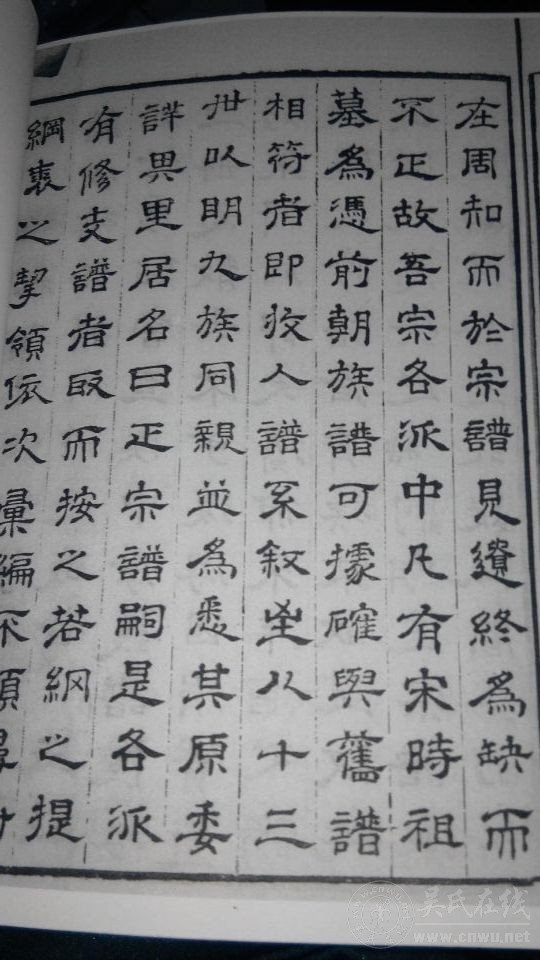 在周知而於宗譜見遺終為缺而
不正故吾宗各派中凡有宋時祖
墓為憑前朝族譜可據確與舊譜
相符者即收入譜系叙坐从十三
世以明九族同親並為悉其原委
詳異里居名曰正宗譜嗣是各派
有修支譜者取而按之若綱之提
綱裘之挈領依次彙編不須尋
吴氏在线
www.cnwu.net